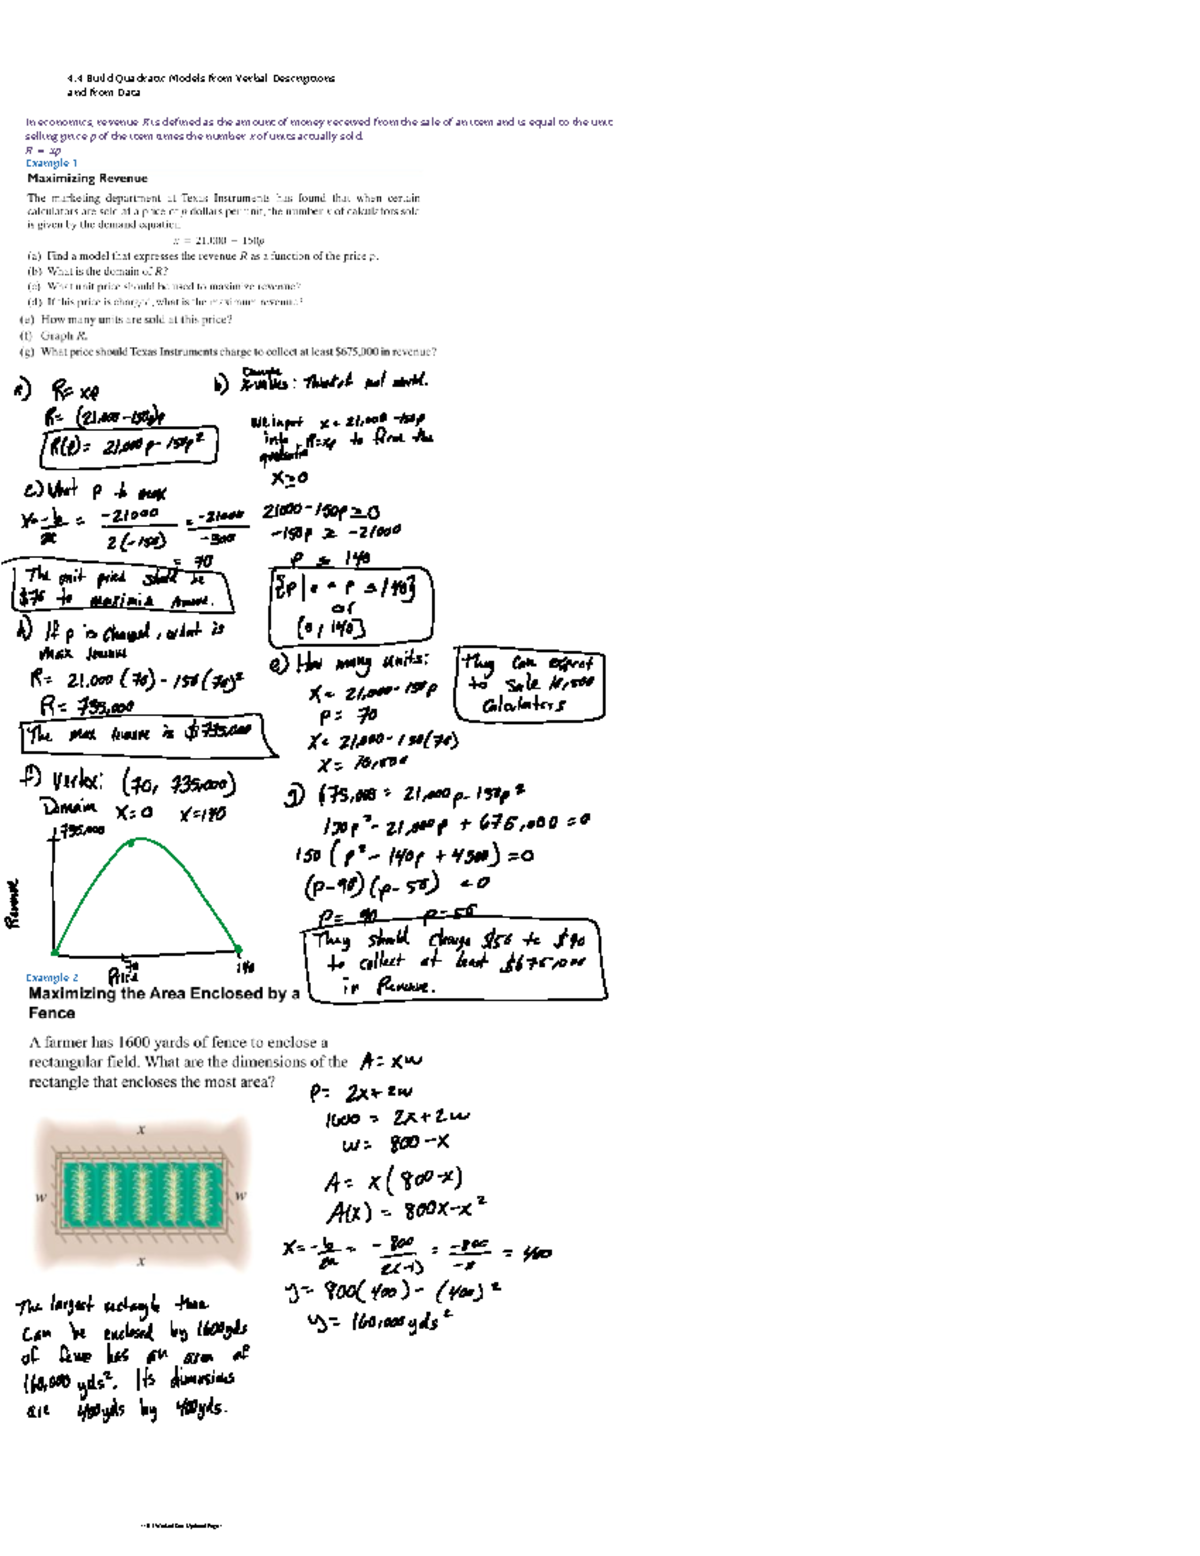 4.4 Build Quadratic Models from Verbal Descriptions
and from Data
In economics, revenue R is defined as the amount of money received from the sale of an item and is equal to the unit
selling price p of the item times the number x of units actually sold.
R = xp
Example 1
Maximizing Revenue
The marketing department at Texas Instruments has found that when certain
calculators are sold at a price of p dollars per unit, the number x of calculators sold
is given by the demand equation
x = 21,000 − 150p
(a) Find a model that expresses the revenue R as a function of the price p.
(b) What is the domain of R?
(c) What unit price should be used to maximize revenue?
(d) If this price is charged, what is the maximum revenue?
(e) How many units are sold at this price?
(f) Graph R.
(g) What price should Texas Instruments charge to collect at least $675,000 in revenue?
a) R = xp
R = (21,000 - 150p)p
R(p) = 21,000p - 150p²
b)
x-values:
We input x = 21,000 - 150p
into R = xp to form the
quadratic
x ≥ 0
21000 - 150p ≥ 0
-150p ≥ -21000
p ≤ 140
{p | 0 ≤ p ≤ 140}
or
[0, 140]
c) What p to max
x = -b/2a = -21000/2(-150) = -21000/-300
= 70
The unit price should be
to maximize revenue.
d) If p is charged, what is
max revenue
R = 21,000(70) - 150(70)²
R = 735,000
The max revenue is $735,000
e) How many units:
x = 21,000 - 150p
p = 70
x = 21,000 - 150(70)
x = 10,500
They can expect
to sale 10,500
calculators
f) Vertex: (70, 735,000)
Domain x=0 x=140
735,000
Revenue
70
140
Price
g) 675,000 = 21,000p - 150p²
150p² - 21,000p + 675,000 = 0
150(p² - 140p + 4500) = 0
(p-90)(p-50) = 0
p = 90 p = 50
They should charge $50 to $90
to collect at least $675,000
in Revenue.
Example 2
Maximizing the Area Enclosed by a
Fence
A farmer has 1600 yards of fence to enclose a
rectangular field. What are the dimensions of the
rectangle that encloses the most area?
A = xw
P = 2x + 2w
1600 = 2x + 2w
w = 800 - x
A = x(800 - x)
A(x) = 800x - x²
x = -b/2a = -800/2(-1) = -800/-2 = 400
y = 800(400) - (400)²
y = 160,000 yds²
x
w
w
x
The largest rectangle that
can be enclosed by 1600 yds
of fence has an area of
160,000 yds². Its dimensions
are 400 yds by 400 yds.